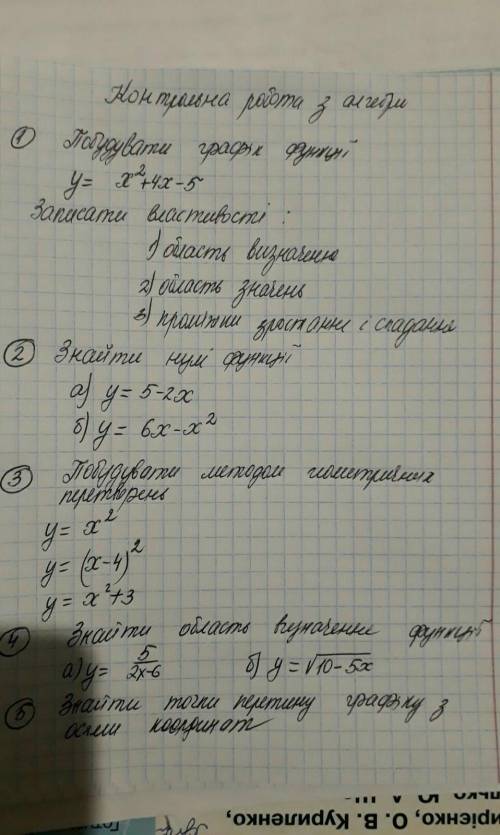 Контрольна робота з алгебри
1 Побудувати графік функції
y= x²+4x-5
Записати властивості:
1) область визначення
2) область значень
3) проміжки зростання і спадання
2 Знайти нулі функції
а) y= 5-2x
б) y= 6x-x²
3 Побудувати методом геометричних
перетворень
y= x²
y= (x-4)²
y= x²+3
4 Знайти область визначення функції
а) y= 5/(2x-6) б) y= √(10-5x)
5 Знайти точки перетину графіку з
осями координат
ирієнко, О. В. Куриленко,